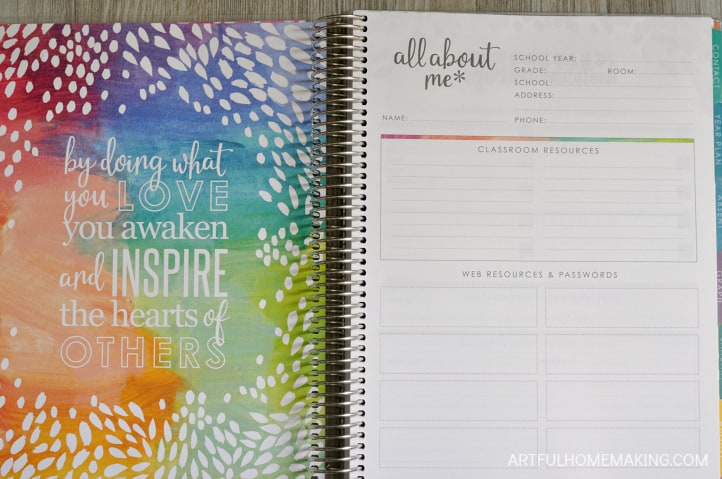 by doing what
you LOVE
you awaken
and INSPIRE
the hearts of
OTHERS
all about
me*
SCHOOL YEAR:
GRADE: ROOM:
SCHOOL:
ADDRESS:
NAME: PHONE:
CLASSROOM RESOURCES
WEB RESOURCES & PASSWORDS
CONTACT
YEAR PLAN
ARTFULHOMEMAKING.COM